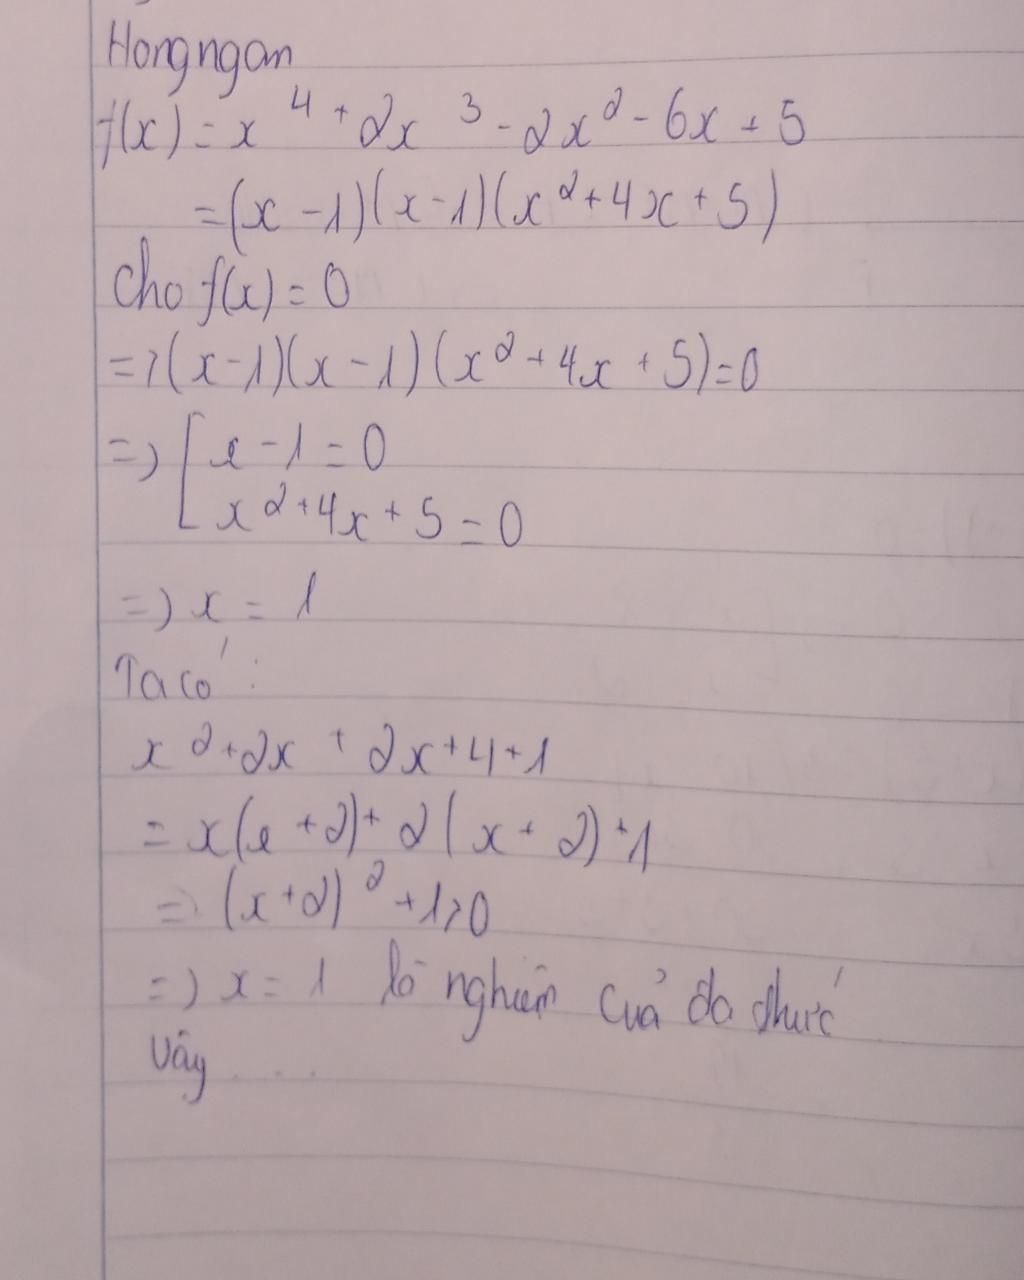 Hongngan
f(x) = x⁴ + 2x³ - 2x² - 6x + 5
= (x - 1)(x - 1)(x² + 4x + 5)
Cho f(x) = 0
=> (x - 1)(x - 1)(x² + 4x + 5) = 0
=> [ x - 1 = 0
x² + 4x + 5 = 0
=> x = 1
Ta có :
x² + 2x + 2x + 4 + 1
= x(x + 2) + 2(x + 2) + 1
= (x + 2)² + 1 > 0
=> x = 1 là nghiệm của đa thức
Vây ....